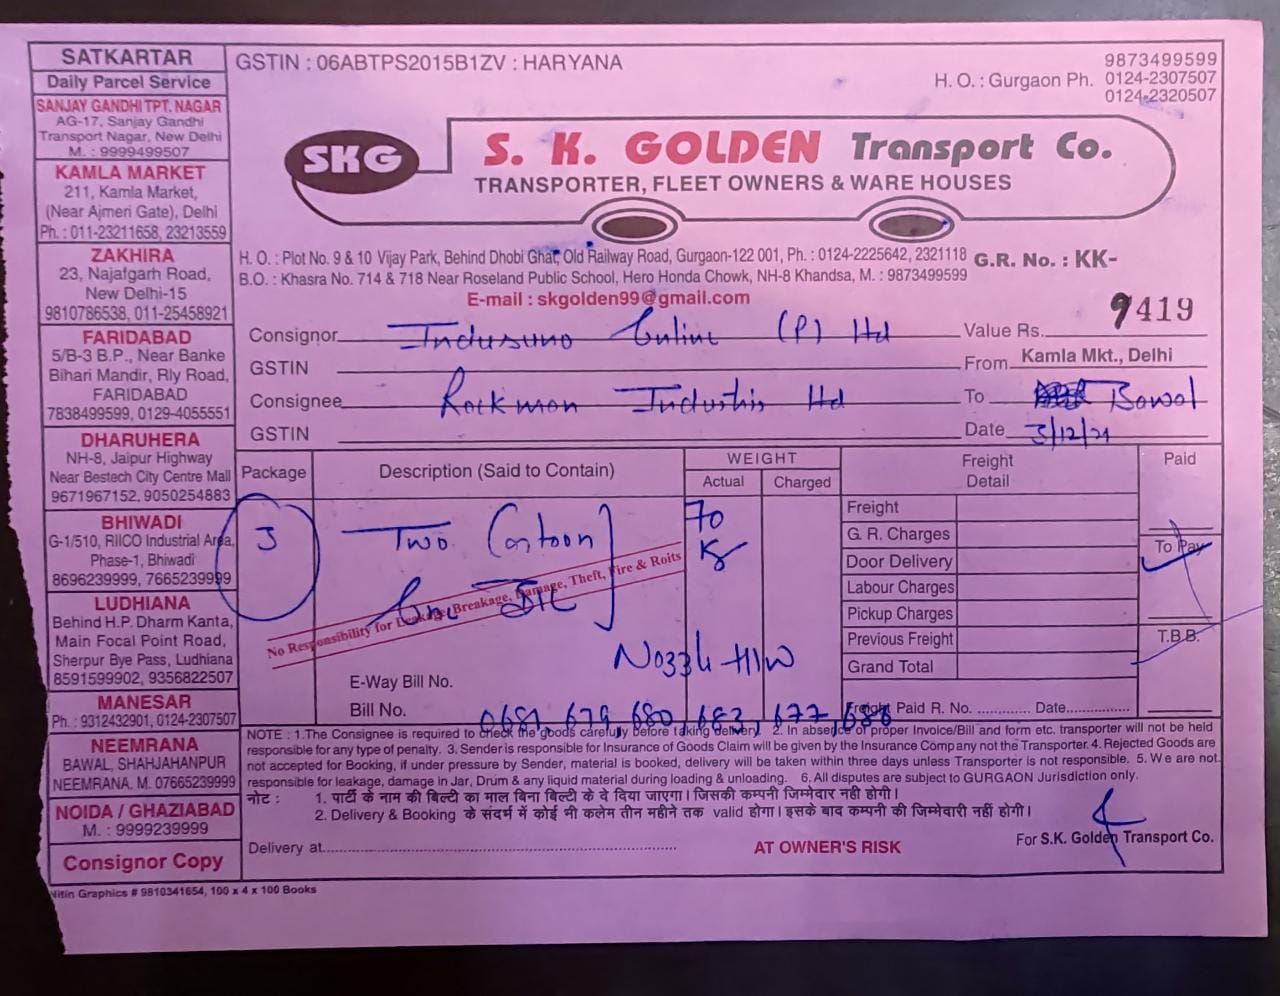 SATKARTAR
Daily Parcel Service
SANJAY GANDHI TPT. NAGAR
AG-17, Sanjay Gandhi
Transport Nagar, New Delhi
M. : 9999499507
KAMLA MARKET
211, Kamla Market,
(Near Ajmeri Gate), Delhi
Ph. : 011-23211658, 23213559
ZAKHIRA
23, Najafgarh Road,
New Delhi-15
9810786538, 011-25458921
FARIDABAD
5/B-3 B.P., Near Banke
Bihari Mandir, Rly Road,
FARIDABAD
7838499599, 0129-4055551
DHARUHERA
NH-8, Jaipur Highway
Near Bestech City Centre Mall
9671967152, 9050254883
BHIWADI
G-1/510, RIICO Industrial Area,
Phase-1, Bhiwadi
8696239999, 7665239999
LUDHIANA
Behind H.P. Dharm Kanta,
Main Focal Point Road,
Sherpur Bye Pass, Ludhiana
8591599902, 9356822507
MANESAR
Ph. : 9312432901, 0124-2307507
NEEMRANA
BAWAL, SHAHJAHANPUR
NEEMRANA, M. 07665239999
NOIDA / GHAZIABAD
M. : 9999239999
Consignor Copy
Nitin Graphics # 9810341654, 100 x 4 x 100 Books
GSTIN : 06ABTPS2015B1ZV : HARYANA
9873499599
H. O. : Gurgaon Ph. 0124-2307507
0124-2320507
SKG
S. K. GOLDEN Transport Co.
TRANSPORTER, FLEET OWNERS & WARE HOUSES
H. O. : Plot No. 9 & 10 Vijay Park, Behind Dhobi Ghat, Old Railway Road, Gurgaon-122 001, Ph. : 0124-2225642, 2321118
G.R. No. : KK-
B.O. : Khasra No. 714 & 718 Near Roseland Public School, Hero Honda Chowk, NH-8 Khandsa, M. : 9873499599
E-mail : skgolden99@gmail.com
9419
Consignor (P) ltd
Value Rs.
GSTIN
From Kamla Mkt., Delhi
Consignee Rockman Industries ltd
To Bawal
GSTIN
Date 3/12/21
Package
Description (Said to Contain)
WEIGHT
Actual
Charged
Freight
Detail
Paid
3
Two Cartoon
One
70
Kg
No Responsibility for Leakage, Breakage, Damage, Theft, Fire & Roits
Freight
G. R. Charges
Door Delivery
Labour Charges
Pickup Charges
Previous Freight
Grand Total
To Pay
T.B.B.
E-Way Bill No.
Bill No. 0681, 679, 680, 683, 677, 688
Freight Paid R. No. ............ Date...............
NOTE : 1.The Consignee is required to check the goods carefully before taking delivery. 2. In absence of proper Invoice/Bill and form etc. transporter will not be held
responsible for any type of penalty. 3. Sender is responsible for Insurance of Goods Claim will be given by the Insurance Company not the Transporter. 4. Rejected Goods are
not accepted for Booking, if under pressure by Sender, material is booked, delivery will be taken within three days unless Transporter is not responsible. 5. We are not
responsible for leakage, damage in Jar, Drum & any liquid material during loading & unloading. 6. All disputes are subject to GURGAON Jurisdiction only.
नोट : 1. पार्टी के नाम की बिल्टी का माल बिना बिल्टी के दे दिया जाएगा। जिसकी कम्पनी जिम्मेदार नही होगी।
2. Delivery & Booking के संदर्भ में कोई भी कलेम तीन महीने तक valid होगा। इसके बाद कम्पनी की जिम्मेदारी नहीं होगी।
Delivery at
AT OWNER'S RISK
For S.K. Golden Transport Co.